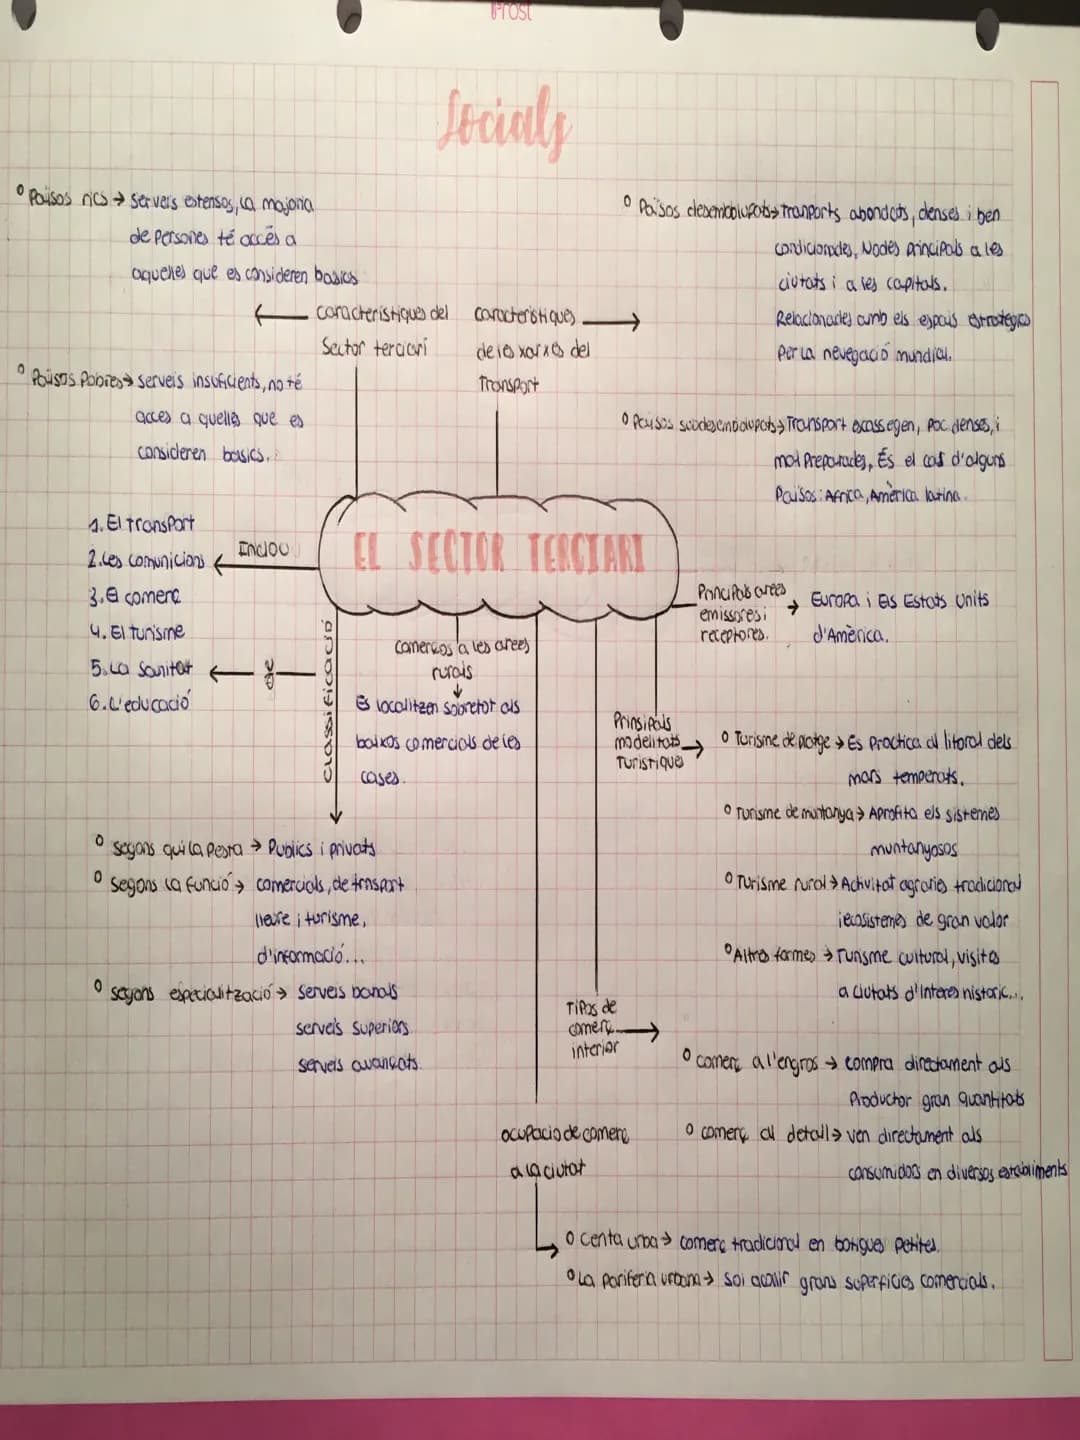 Socials
° Països rics → Serveis extensos, la majoria
de Persones té accés a
aquelles que es consideren basics
← caracteristiques del
Sector terciari
° Països Pobres → serveis insuficients, no té
acces a quelles que es
consideren basics.
caracteristiques →
de les xarxes del
Transport
° Països desembolupats → Tranports abondats, denses i ben
condicionades, Nodes principals a les
ciutats i a les capitals.
Relacionades amb els espais estrategics
Per la nevegació mundial.
° Països subdesembolupats → Transport escassegen, Poc denses, i
mal Preparades, És el cas d'alguns
Països: Africa, Amèrica latina.
EL SECTOR TERCIARI
Inclou
1. El transport
2. Les comunicions ←
3. El comerç
4. El turisme
5. La Sanitat ←
6. L'educació
Principals arees
emissores i →
receptores.
Europa i Els Estats Units
d'Amèrica.
Classificació
° Segons qui la Pesra → Publics i privats
° Segons la Funció → comercials, de trnsport
lleure i turisme,
d'informació...
° Segons especialització → Serveis banals
serveis superiors
serveis avançats.
Comerços a les arees
rurals
↓
Es localitzen sobretot als
baixos comercials de les
cases.
Prinsipals
modelitats →
Turistiques
° Turisme de platge → Es Practica al litoral dels
mars temperats.
° Turisme de muntanya → Aprofita els sistemes
muntanyosos
° Turisme rural → Activitat agraries tradicional
i ecosistemes de gran valor
° Altres formes → Turisme cultural, visites
a ciutats d'interes historic...
Tipos de
comerç →
interior
° Comerç a l'engros → compra directament als
Productor gran quantitats
° comerç al detall → ven directament als
consumidors en diversos establiments
ocupacio de comerç
a la ciutat
° centa urba → comerç tradicional en botigues petites.
° La pariferia urbana → sol acollir grans superficies comercials.